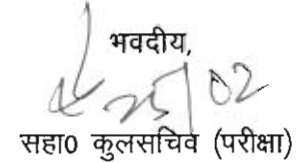 भवदीय,
25/02
सहा0 कुलसचिव (परीक्षा)